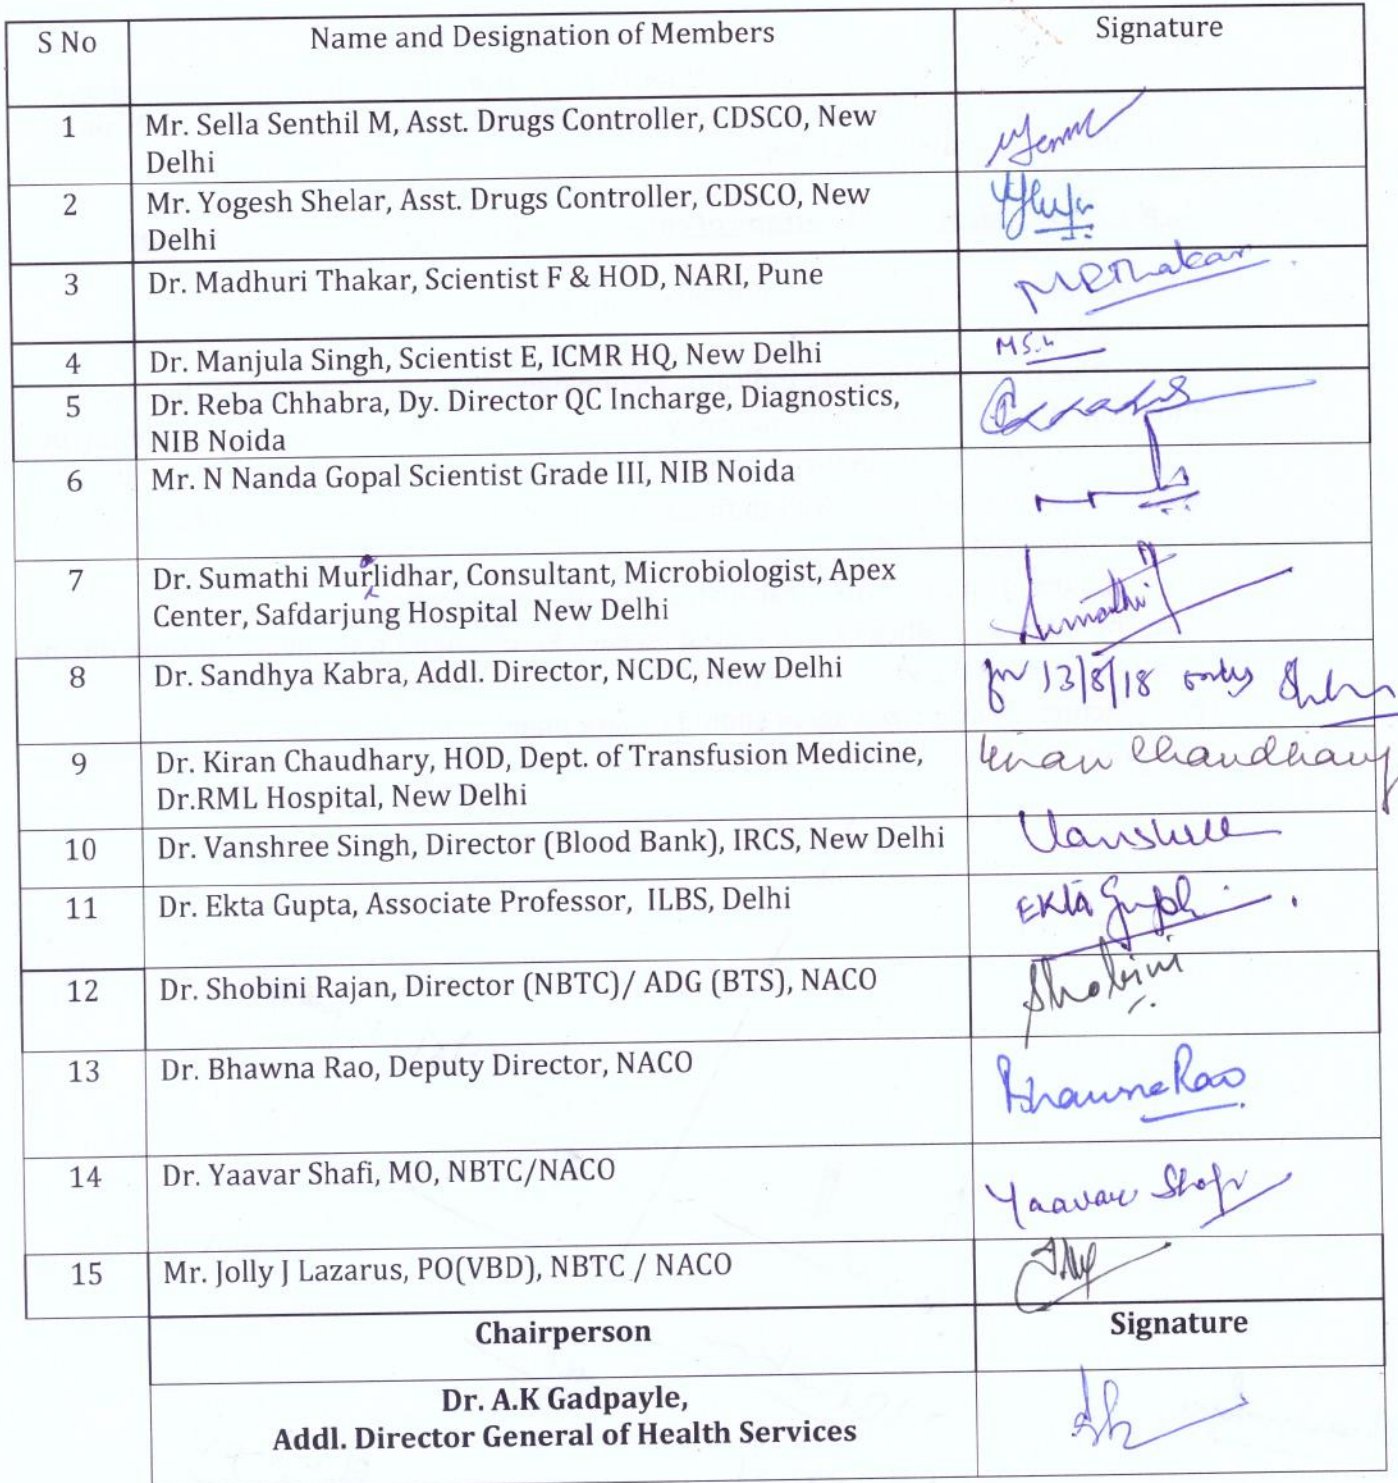 S No Name and Designation of Members Signature
1 Mr. Sella Senthil M, Asst. Drugs Controller, CDSCO, New
Delhi
2 Mr. Yogesh Shelar, Asst. Drugs Controller, CDSCO, New
Delhi
3 Dr. Madhuri Thakar, Scientist F & HOD, NARI, Pune MRThakar
4 Dr. Manjula Singh, Scientist E, ICMR HQ, New Delhi
5 Dr. Reba Chhabra, Dy. Director QC Incharge, Diagnostics,
NIB Noida
6 Mr. N Nanda Gopal Scientist Grade III, NIB Noida
7 Dr. Sumathi Murlidhar, Consultant, Microbiologist, Apex
Center, Safdarjung Hospital New Delhi Sumathi
8 Dr. Sandhya Kabra, Addl. Director, NCDC, New Delhi for 13/8/18 only
9 Dr. Kiran Chaudhary, HOD, Dept. of Transfusion Medicine, Kiran Chaudhary
Dr.RML Hospital, New Delhi
10 Dr. Vanshree Singh, Director (Blood Bank), IRCS, New Delhi Vanshree
11 Dr. Ekta Gupta, Associate Professor, ILBS, Delhi Ekta Gupta
12 Dr. Shobini Rajan, Director (NBTC)/ ADG (BTS), NACO Shobini
13 Dr. Bhawna Rao, Deputy Director, NACO Bhawna Rao
14 Dr. Yaavar Shafi, MO, NBTC/NACO Yaavar Shafi
15 Mr. Jolly J Lazarus, PO(VBD), NBTC / NACO
Chairperson Signature
Dr. A.K Gadpayle,
Addl. Director General of Health Services